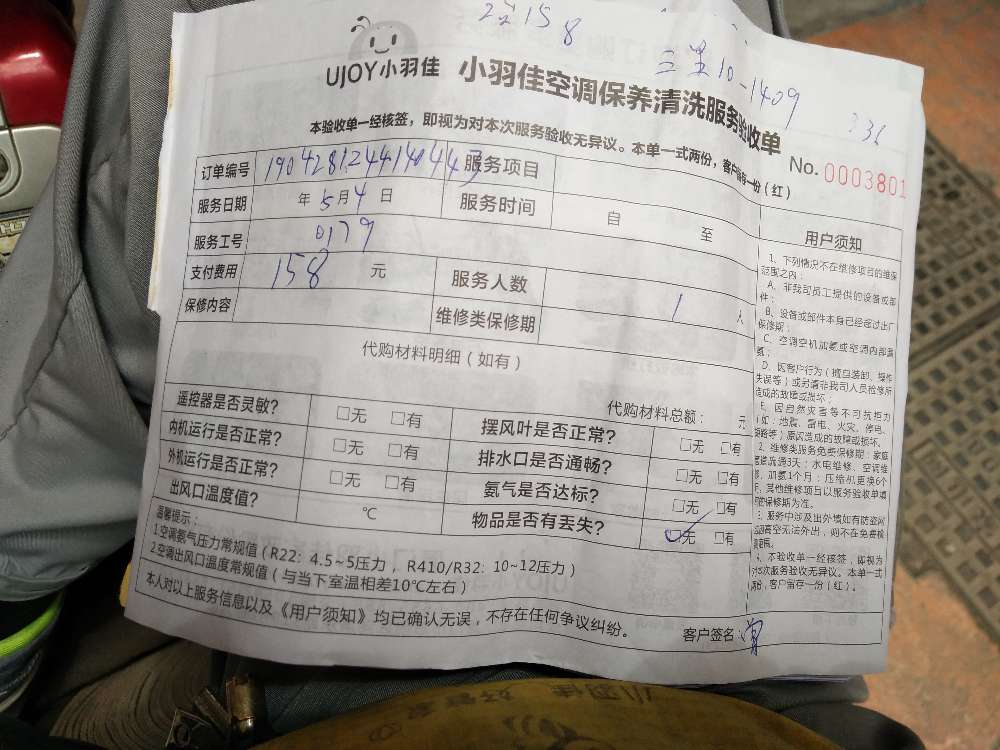 158
10-1409
336
UJOY小羽佳 小羽佳空调保养清洗服务验收单
本验收单一经核签，即视为对本次服务验收无异议。本单一式两份，客户留存一份（红）
No. 0003801
订单编号 服务项目
服务日期 年 5 月 4 日 服务时间 自 至
服务工号 0179
支付费用 158 元 服务人数 1 人
保修内容 维修类保修期
代购材料明细（如有）
代购材料总额： 元
遥控器是否灵敏? □无 □有 摆风叶是否正常? □无 □有
内机运行是否正常? □无 □有 排水口是否通畅? □无 □有
外机运行是否正常? □无 □有 氨气是否达标? □无 □有
出风口温度值? ℃ 物品是否有丢失? □无 □有
温馨提示：
1.空调氨气压力常规值（R22: 4.5~5压力， R410/R32: 10~12压力）
2.空调出风口温度常规值（与当下室温相差10℃左右）
本人对以上服务信息以及《用户须知》均已确认无误，不存在任何争议纠纷。
客户签名:
用户须知
1、下列情况不在维修项目的维保
范围之内：
A、非我司员工提供的设备或部
件；
B、设备或部件本身已经超过出厂
保修期；
C、空调空机加氨或空调内部漏
氨；
D、因客户行为（擅自装卸、操作
失误等）或另请非我司人员检修所
造成的故障或损坏；
E、因自然灾害等不可抗拒力
如：地震、雷电、火灾、停电、
等）原因造成的故障或损坏。
2、维修类服务免费保修期：家庭
疏通3天；水电维修、空调维
、加氨1个月；压缩机更换6个
，其他维修项目以服务验收单填
保修期为准。
服务中涉及出外墙如有防盗网
高空无法外出，则不在免费检
、本验收单一经核签，即视为
次服务验收无异议。本单一式
，客户留存一份（红）。
小羽佳